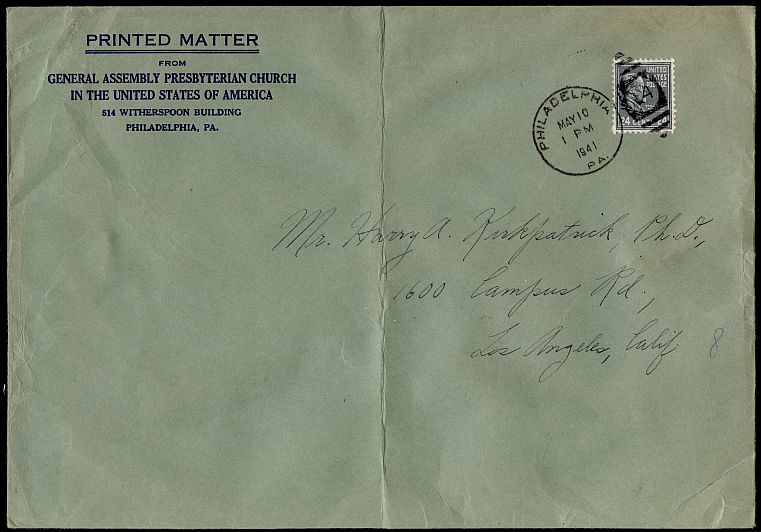 PRINTED MATTER
FROM
GENERAL ASSEMBLY PRESBYTERIAN CHURCH
IN THE UNITED STATES OF AMERICA
514 WITHERSPOON BUILDING
PHILADELPHIA, PA.
PHILADELPHIA
MAY 10
1 PM
1941
PA.
UNITED
STATES
24
Mr. Harry A. Kirkpatrick, Ph.D.,
1600 Campus Rd.,
Los Angeles, Calif. 8